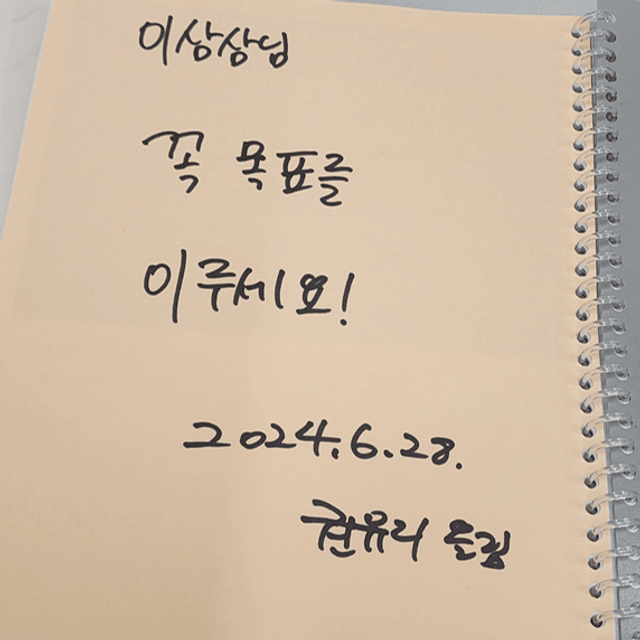 이상상님
꼭 목표를
이루세요!
2024.6.28.
권유리 드림